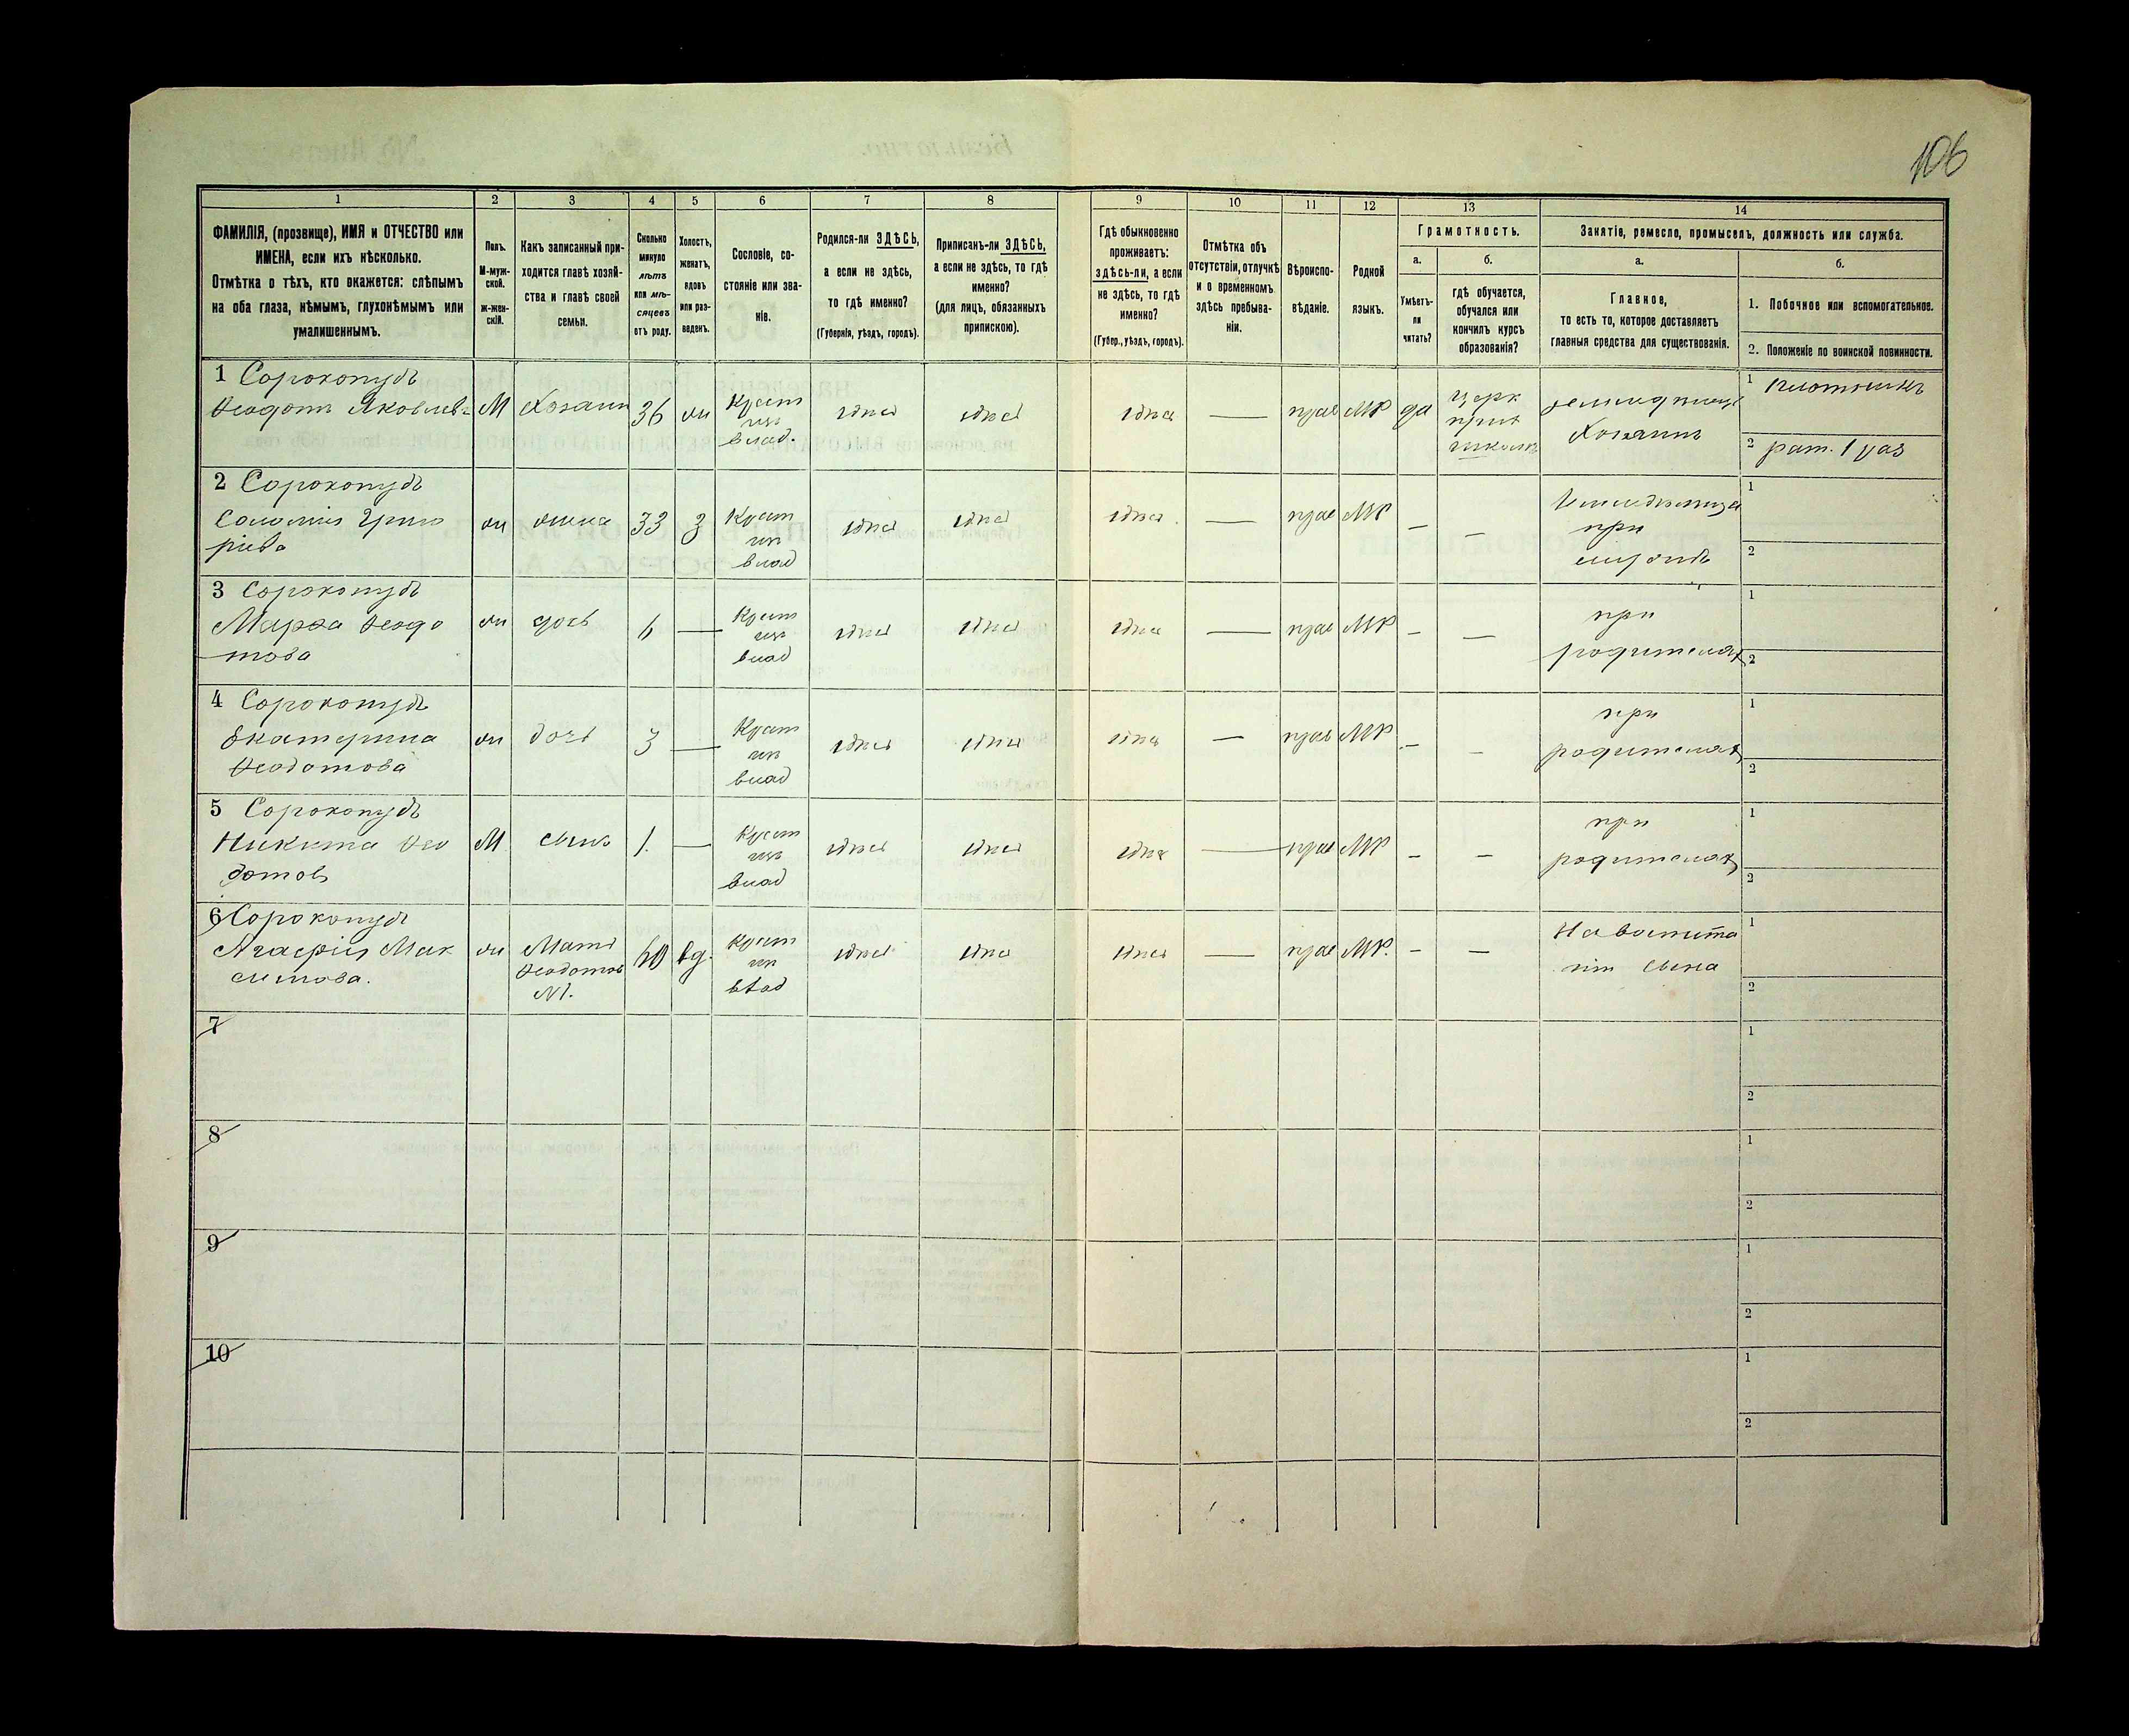 106
1
2
3
4
5
6
7
8
9
10
11
12
13
14
ФАМИЛІЯ, (прозвище), ИМЯ и ОТЧЕСТВО или
ИМЕНА, если ихъ нѣсколько.
Отмѣтка о тѣхъ, кто окажется: слѣпымъ
на оба глаза, нѣмымъ, глухонѣмымъ или
умалишеннымъ.
Полъ.
М-муж-
ской.
ж-жен-
скій.
Какъ записанный при-
ходится главѣ хозяй-
ства и главѣ своей
семьи.
Сколько
минуло
лѣтъ
или мѣ-
сяцевъ
отъ роду.
Холостъ,
женатъ,
вдовъ
или раз-
веденъ.
Сословіе, со-
стояніе или зва-
ніе.
Родился-ли ЗДѢСЬ,
а если не здѣсь,
то гдѣ именно?
(Губернія, уѣздъ, городъ).
Приписанъ-ли ЗДѢСЬ,
а если не здѣсь, то гдѣ
именно?
(для лицъ, обязанныхъ
припискою).
Гдѣ обыкновенно
проживаетъ:
здѣсь-ли, а если
не здѣсь, то гдѣ
именно?
(Губер., уѣздъ, городъ).
Отмѣтка объ
отсутствіи, отлучкѣ
и о временномъ
здѣсь пребыва-
ніи.
Вѣроиспо-
вѣданіе.
Родной
языкъ.
Грамотность.
а.
Умѣетъ-
ли
читать?
б.
гдѣ обучается,
обучался или
кончилъ курсъ
образованія?
Занятіе, ремесло, промыселъ, должность или служба.
а.
Главное,
то есть то, которое доставляетъ
главныя средства для существованія.
б.
1. Побочное или вспомогательное.
2. Положеніе по воинской повинности.
1 Сорокопудъ
Ѳеодотъ Яковлевъ
М
Хозяинъ
36
ж
Крест
изъ
влад.
здѣсь
здѣсь
здѣсь
—
прав
МР
да
церк
прих
школѣ
земледѣлецъ
Хозяинъ
1 плотникъ
2 рат. 1 раз
2 Сорокопудъ
Соломія Григо
рієва
ж
жена
33
з
Крест
изъ
влад
здѣсь
здѣсь
здѣсь
—
прав
МР
—
—
при
1
2
3 Сорокопудъ
Марѳа Ѳеодо
това
ж
дочь
6
—
Крест
изъ
влад
здѣсь
здѣсь
здѣсь
—
прав
МР
—
—
при
родителях
1
2
4 Сорокопудъ
Екатерина
Ѳеодотова
ж
дочь
3
—
Крест
изъ
влад
здѣсь
здѣсь
здѣсь
—
прав
МР
—
—
при
родителях
1
2
5 Сорокопудъ
Никита Ѳео
дотовъ
М
сынъ
1.
—
Крест
изъ
влад
здѣсь
здѣсь
здѣсь
—
прав
МР
—
—
при
родителях
1
2
6 Сорокопудъ
Агафія Мак
симова.
ж
Мать
Ѳеодотов
№1.
60
вд.
Крест
изъ
влад
здѣсь
здѣсь
здѣсь
—
прав
МР.
—
—
сына
1
2
7
1
2
8
1
2
9
1
2
10
1
2